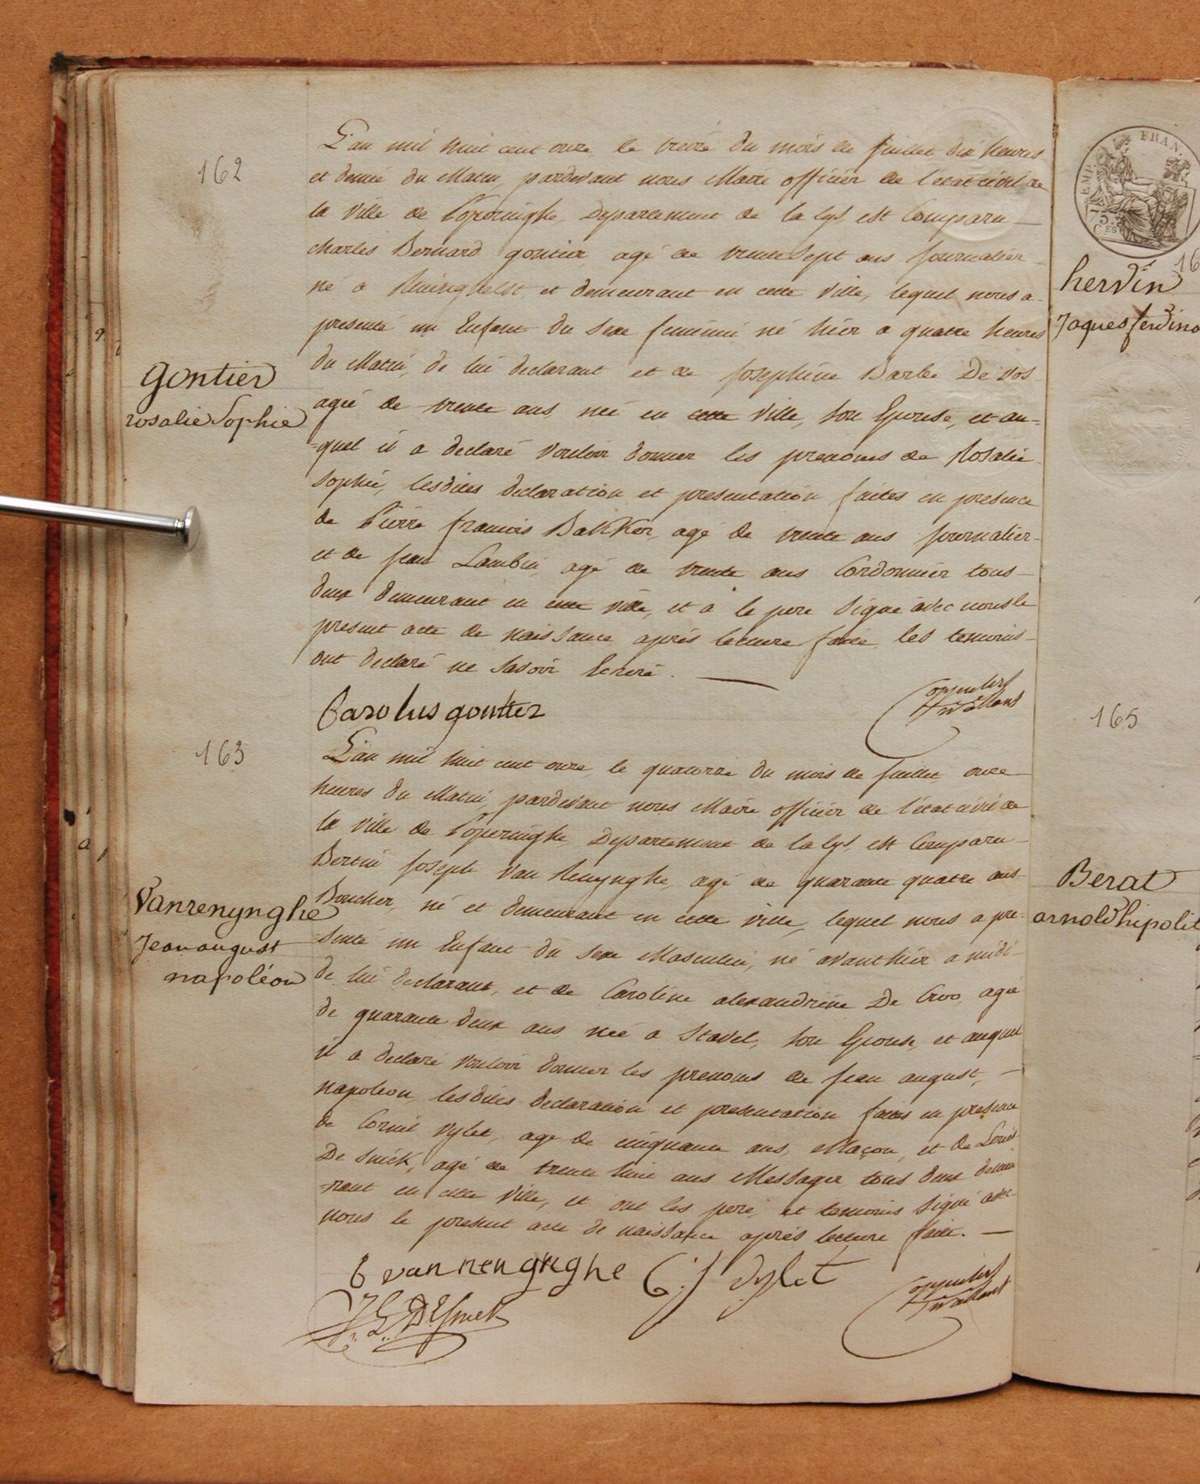 162
L'an mil huit cent onze le treize du mois de juillet dix heures
et demie du Matin, pardevant nous Maire officier de l'état civil de
la ville de Poperinghe, Departement de la lys est Comparu
charles Bernard gontier agé de trente sept ans journalier
né a Reninghelst, et demeurant en cette ville, lequel nous a
presenté un Enfant du sexe feminin né hier a quatre heures
du Matin, de lui declarant et de Josephine Barbe De Vos
gontier
rosalie Sophie
agée de trente ans née en cette ville, son Epouse, et au-
-quel il a declaré vouloir donner les prenoms de Rosalie
Sophie, lesdites declaration et presentation faites en presence
de Pierre francois Bakker, agé de trente ans journalier
et de jean Lambin agé de trente ans Cordonnier tous
deux demeurant en cette ville, et a le pere signé avec nous le
present acte de naissance aprés lecture faite les temoins
ont declaré ne savoir Ecrire.
Carolus gontier
163
L'an mil huit cent onze, le quatorze du mois de juillet onze
heures du Matin, pardevant nous Maire officier de l'état civil de
la ville de Poperinghe Departement de la lys est Comparu
Bertin Joseph Van Renynghe, agé de quarante quatre ans
Vanrenynghe
Jean august
napoléon
Boucher, né et demeurant en cette ville, lequel nous a pre
senté un Enfant du sexe Masculin, né avant hier a midi
de lui declarant, et de Caroline alexandrine De Croo, agée
de quarante deux ans née a Stavel, son Epouse, et auquel
il a declaré vouloir donner les prenoms de jean august,
napoleon, lesdites declaration et presentation faites en presence
de Cornil Dylet, agé de cinquante ans, Maçon, et de Louis
De Smick, agé de trente huit ans Messager tous deux demeu
-rant en cette ville, et ont les pere et temoins signé avec
nous le present acte de naissance aprés lecture faite.
B van nenynghe C. J dylet
J. L. DEsmick
hervin
Jaques ferdinand
165
Berat
arnold hipolit